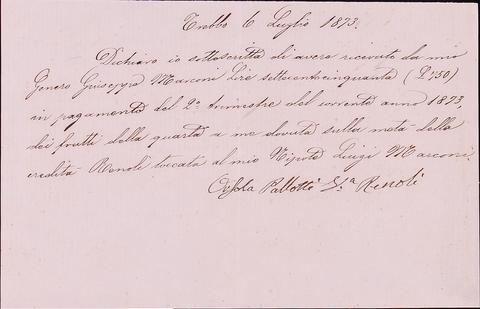 Trebbo 6 Luglio 1873.
Dichiaro io sottoscritta di avere ricevuto da mio
Genero Giuseppe Marconi Lire settecentocinquanta (£ 750)
in pagamento del 2° trimestre del corrente anno 1873,
dei frutti della quarta a me dovuta sulla metà della
eredità Renoli toccata al mio Nipote Luigi Marconi.
Pallotti Renoli